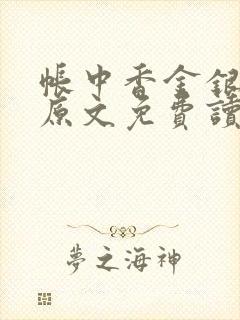 帳中香金銀
原文免費讀
夢之海神